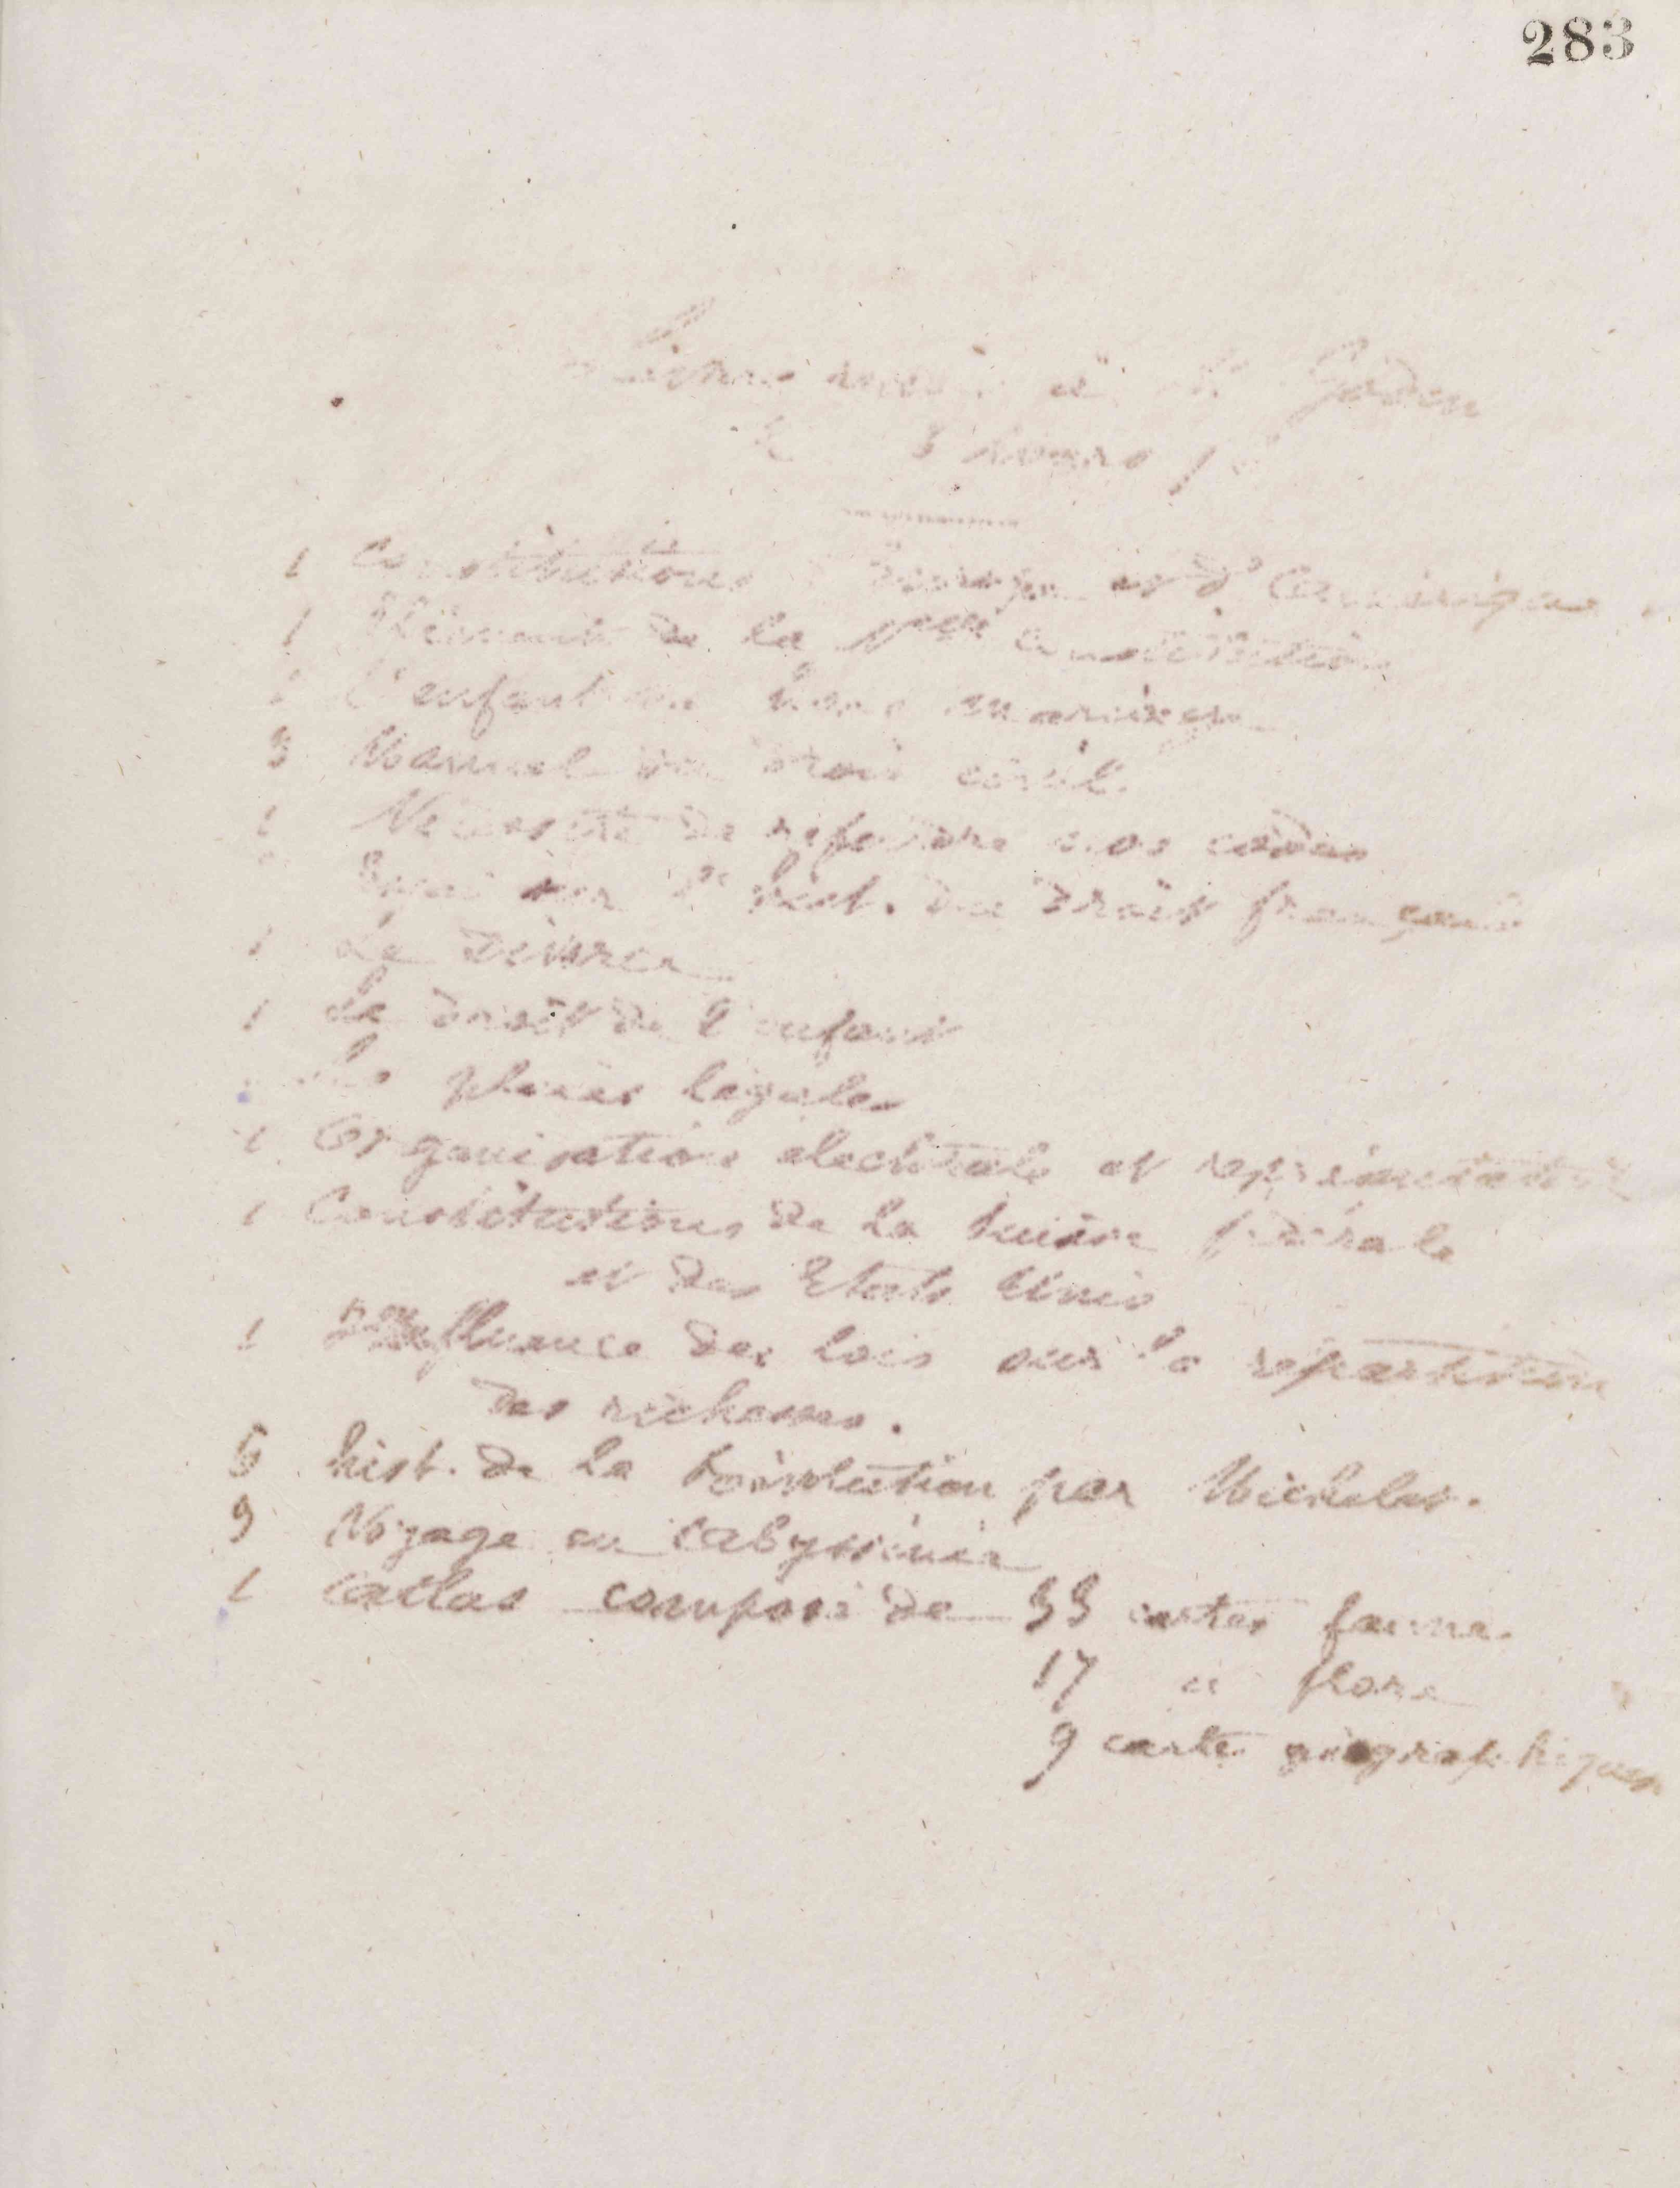 283
Livres à Mr Godin
le 3 mars
1 Constitutions d'Europe et d'Amérique
1 Eléments de la Nlle constitution
1 L'enfant né hors mariage
3 Manuel du droit civil.
1 Nécessité de refondre nos codes
Essai sur l'hist. du droit français
1 Le divorce
1 Le droit de l'enfant
Les plaies légales
1 Organisation électorale et représentative
1 Constitutions de la Suisse fédérale
et des Etats Unis
1 Influence des lois sur la répartition
des richesses.
6 hist. de la Révolution par Michelet.
9 Voyage en Abyssinie
1 Atlas composé de 33 cartes faune.
17 " flore
9 carte géographiques